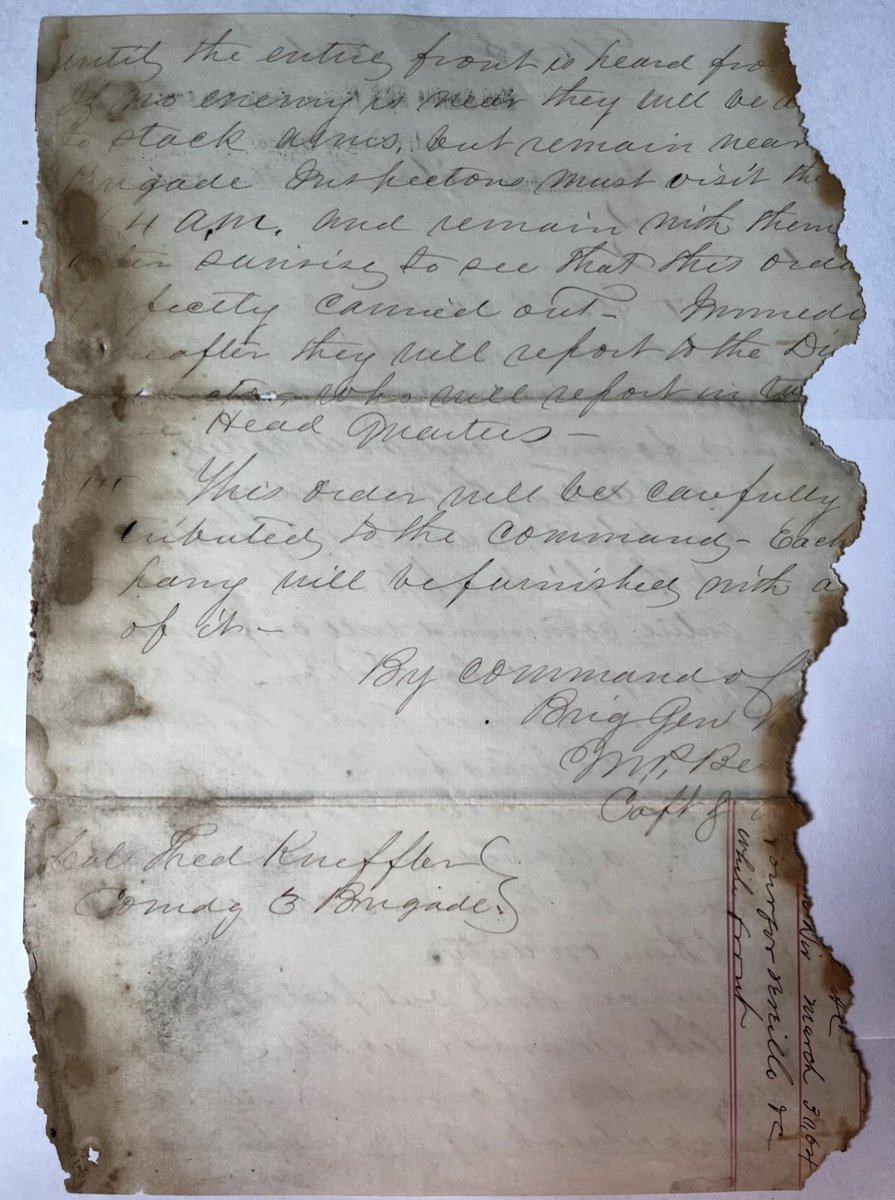 until the entire front is heard fro
If no enemy is near they will be d
to stack arms, but remain near
Brigade Inspectors must visit the
4 A.M. and remain with them
after sunrise to see that this orde
fectly carried out – Immedi
eafter they will report to the Di
who will report in
Head Quarters –
III This order will be carefully
tributed to the command – Each
pany will be furnished with a
of it –
By command of
Brig Gen
M. P. Be
Capt &
Col Fred Kneffler
Comdg 3 Brigade
March
&c
while front